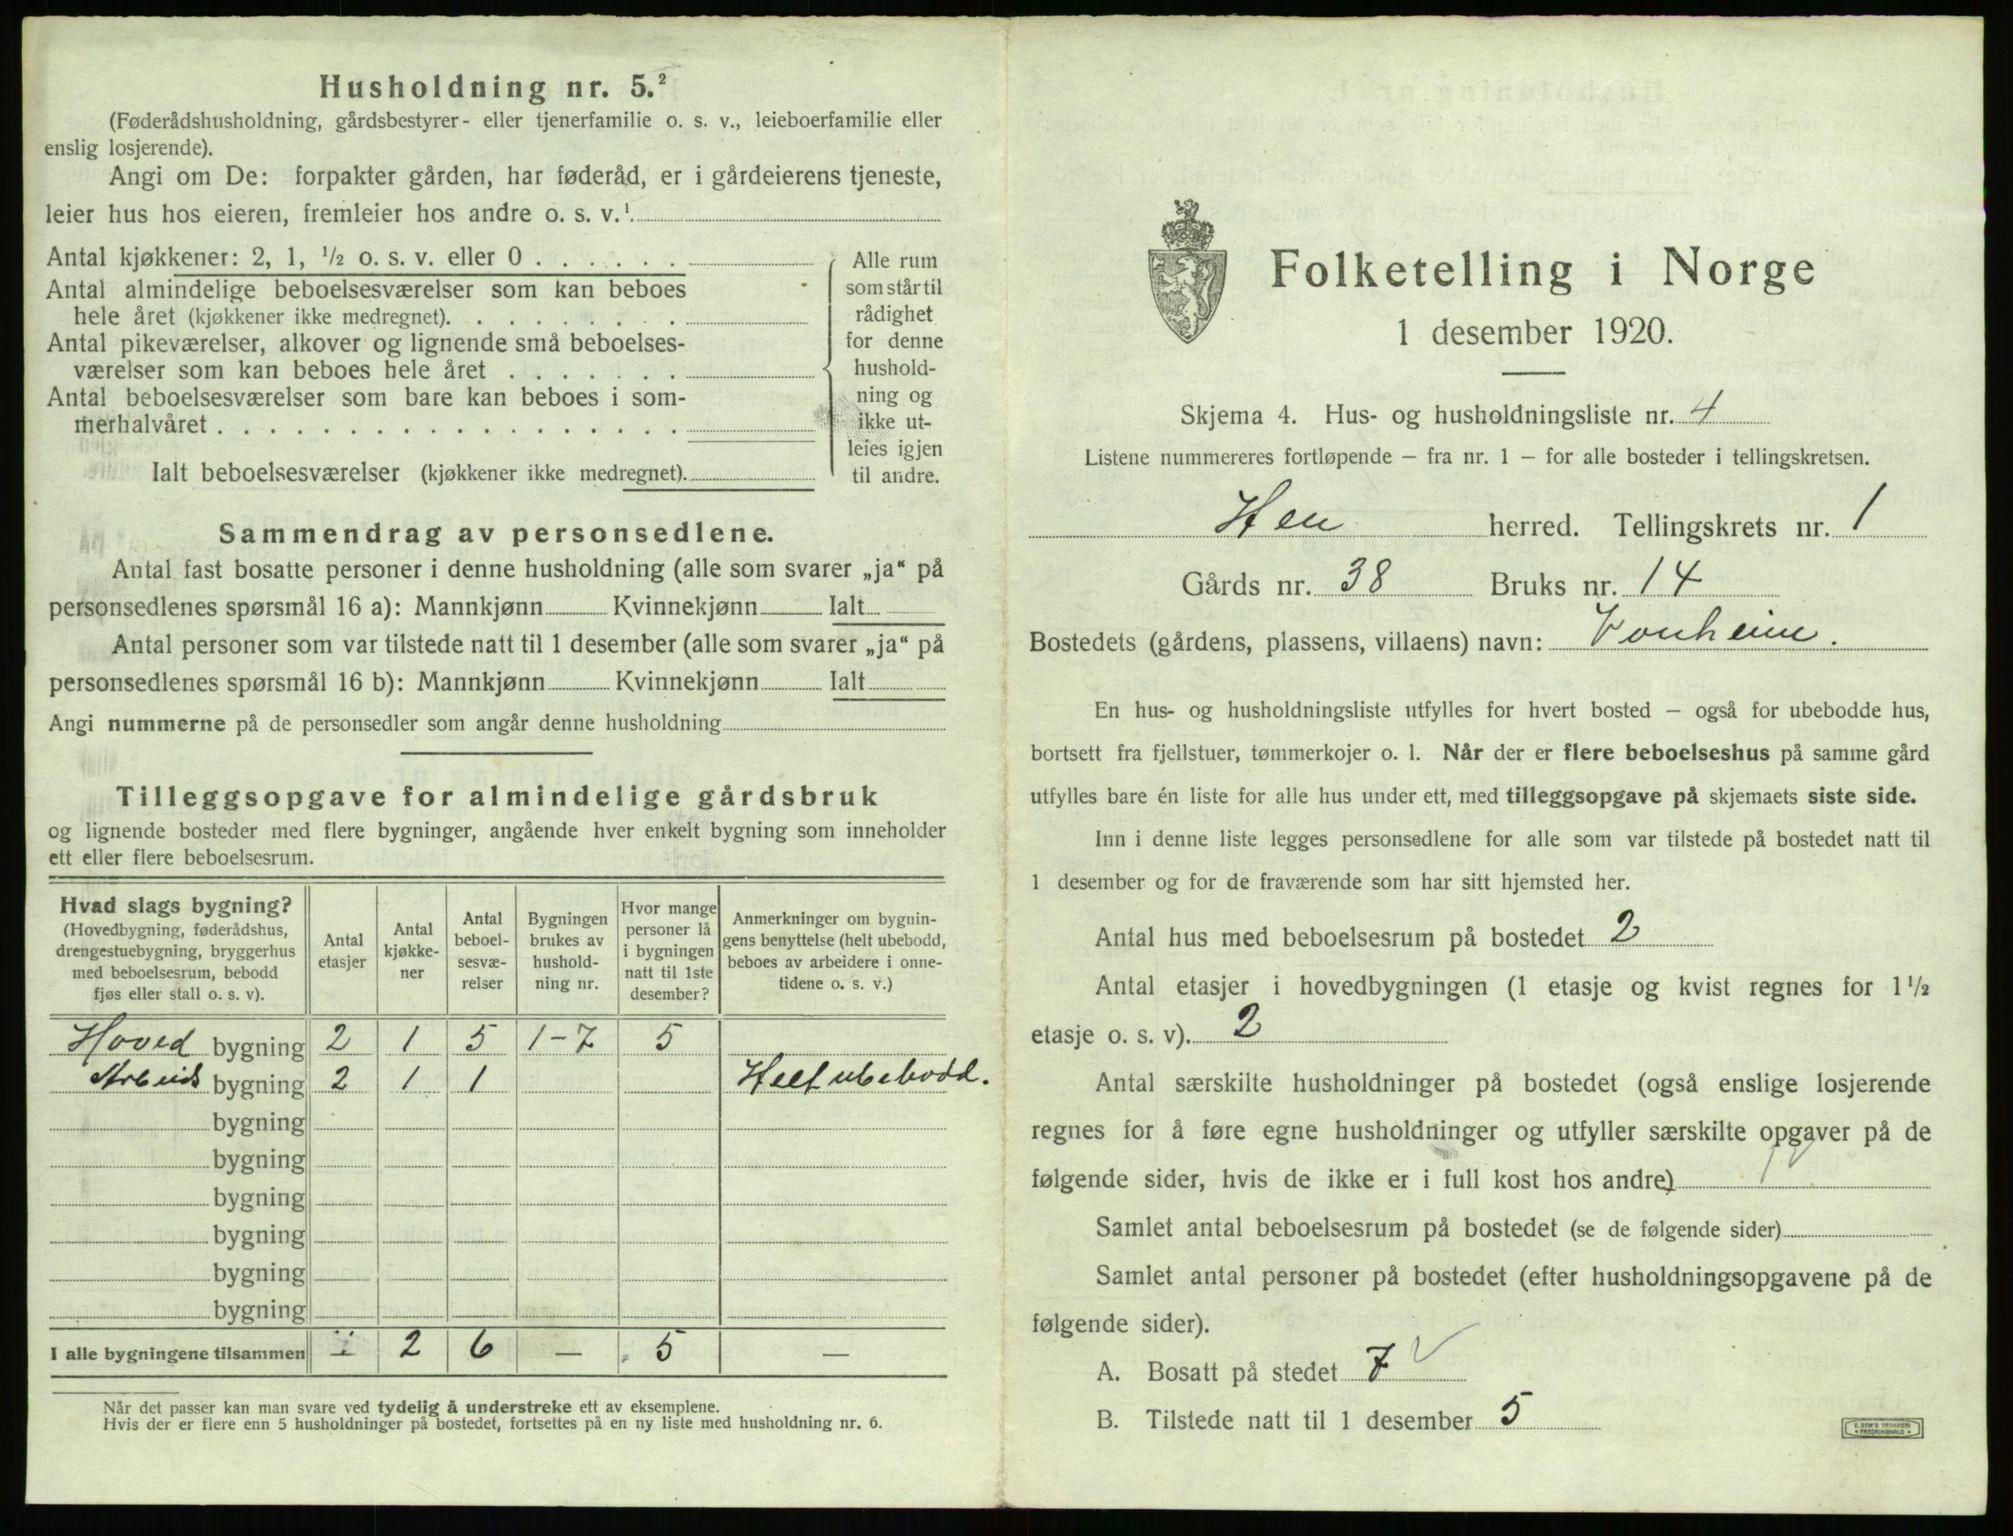 Husholdning nr. 5.²
(Føderådshusholdning, gårdsbestyrer- eller tjenerfamilie o. s. v., leieboerfamilie eller
enslig losjerende).
Angi om De: forpakter gården, har føderåd, er i gårdeierens tjeneste,
leier hus hos eieren, fremleier hos andre o. s. v.¹
Antal kjøkkener: 2, 1, ½ o. s. v. eller 0 . . . . . .
Antal almindelige beboelsesværelser som kan beboes
hele året (kjøkkener ikke medregnet). . . . . . . . .
Antal pikeværelser, alkover og lignende små beboelses-
værelser som kan beboes hele året . . . . . . .
Antal beboelsesværelser som bare kan beboes i som-
merhalvåret . . . . . . . . . . . . . . . . . .
Ialt beboelsesværelser (kjøkkener ikke medregnet).
Alle rum
som står til
rådighet
for denne
hushold-
ning og
ikke ut-
leies igjen
til andre.
Sammendrag av personsedlene.
Antal fast bosatte personer i denne husholdning (alle som svarer „ja“ på
personsedlenes spørsmål 16 a): Mannkjønn Kvinnekjønn Ialt
Antal personer som var tilstede natt til 1 desember (alle som svarer „ja“ på
personsedlenes spørsmål 16 b): Mannkjønn Kvinnekjønn Ialt
Angi nummerne på de personsedler som angår denne husholdning
Tilleggsopgave for almindelige gårdsbruk
og lignende bosteder med flere bygninger, angående hver enkelt bygning som inneholder
ett eller flere beboelsesrum.
Hvad slags bygning?
(Hovedbygning, føderådshus,
drengestuebygning, bryggerhus
med beboelsesrum, bebodd
fjøs eller stall o. s. v).
Antal
etasjer
Antal
kjøkke-
ner
Antal
beboel-
sesvæ-
relser
Bygningen
brukes av
hushold-
ning nr.
Hvor mange
personer lå
i bygningen
natt til 1ste
desember?
Anmerkninger om bygnin-
gens benyttelse (helt ubebodd,
beboes av arbeidere i onne-
tidene o. s. v.)
Hoved bygning 2 1 5 1-7 5
Arbeids bygning 2 1 1 Helt ubebodd.
bygning
bygning
bygning
bygning
bygning
bygning
I alle bygningene tilsammen 2 6 — 5 —
Når det passer kan man svare ved tydelig å understreke ett av eksemplene.
Hvis der er flere enn 5 husholdninger på bostedet, fortsettes på en ny liste med husholdning nr. 6.
Folketelling i Norge
1 desember 1920.
Skjema 4. Hus- og husholdningsliste nr. 4
Listene nummereres fortløpende – fra nr. 1 – for alle bosteder i tellingskretsen.
Hen herred. Tellingskrets nr. 1
Gårds nr. 38 Bruks nr. 14
Bostedets (gårdens, plassens, villaens) navn: Vonheim.
En hus- og husholdningsliste utfylles for hvert bosted – også for ubebodde hus,
bortsett fra fjellstuer, tømmerkojer o. l. Når der er flere beboelseshus på samme gård
utfylles bare én liste for alle hus under ett, med tilleggsopgave på skjemaets siste side.
Inn i denne liste legges personsedlene for alle som var tilstede på bostedet natt til
1 desember og for de fraværende som har sitt hjemsted her.
Antal hus med beboelsesrum på bostedet 2
Antal etasjer i hovedbygningen (1 etasje og kvist regnes for 1½
etasje o. s. v). 2
Antal særskilte husholdninger på bostedet (også enslige losjerende
regnes for å føre egne husholdninger og utfyller særskilte opgaver på de
følgende sider, hvis de ikke er i full kost hos andre)
Samlet antal beboelsesrum på bostedet (se de følgende sider)
Samlet antal personer på bostedet (efter husholdningsopgavene på de
følgende sider).
A. Bosatt på stedet 7
B. Tilstede natt til 1 desember 5
E. SEM'S TRYKKERI
FREDRIKSHALD